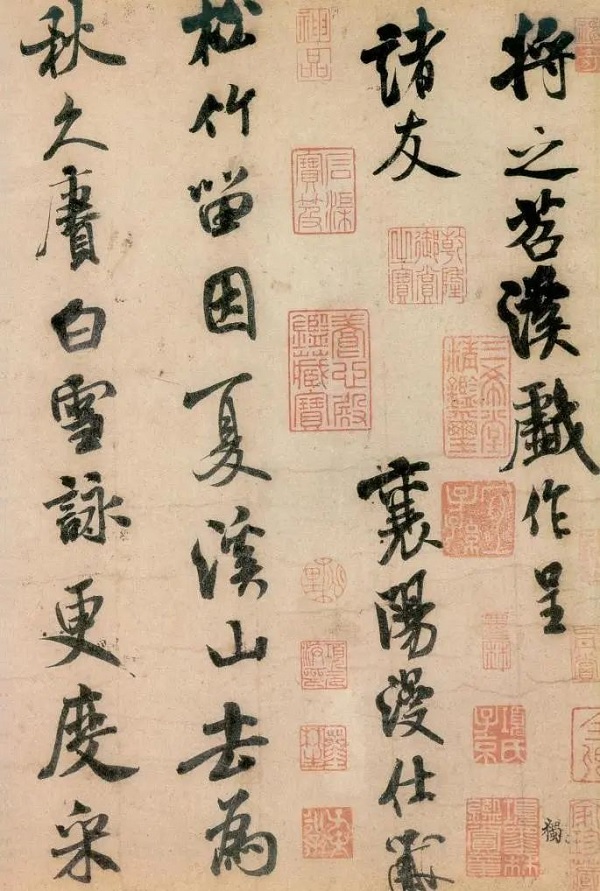 將之苕溪戲作呈
諸友
襄陽漫仕黻
松竹留因夏溪山去為
秋久賡白雪詠更度采
神品
石渠寶笈
乾隆御賞之寶
養心殿鑑藏寶
三希堂精鑑璽
宜子孫
墨林
項氏子京
獨